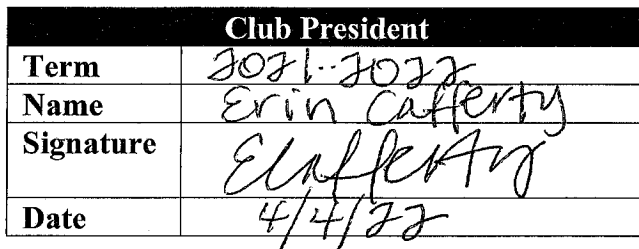 Club President
Term 2021-2022
Name Erin Cafferty
Signature ECafferty
Date 4/4/22